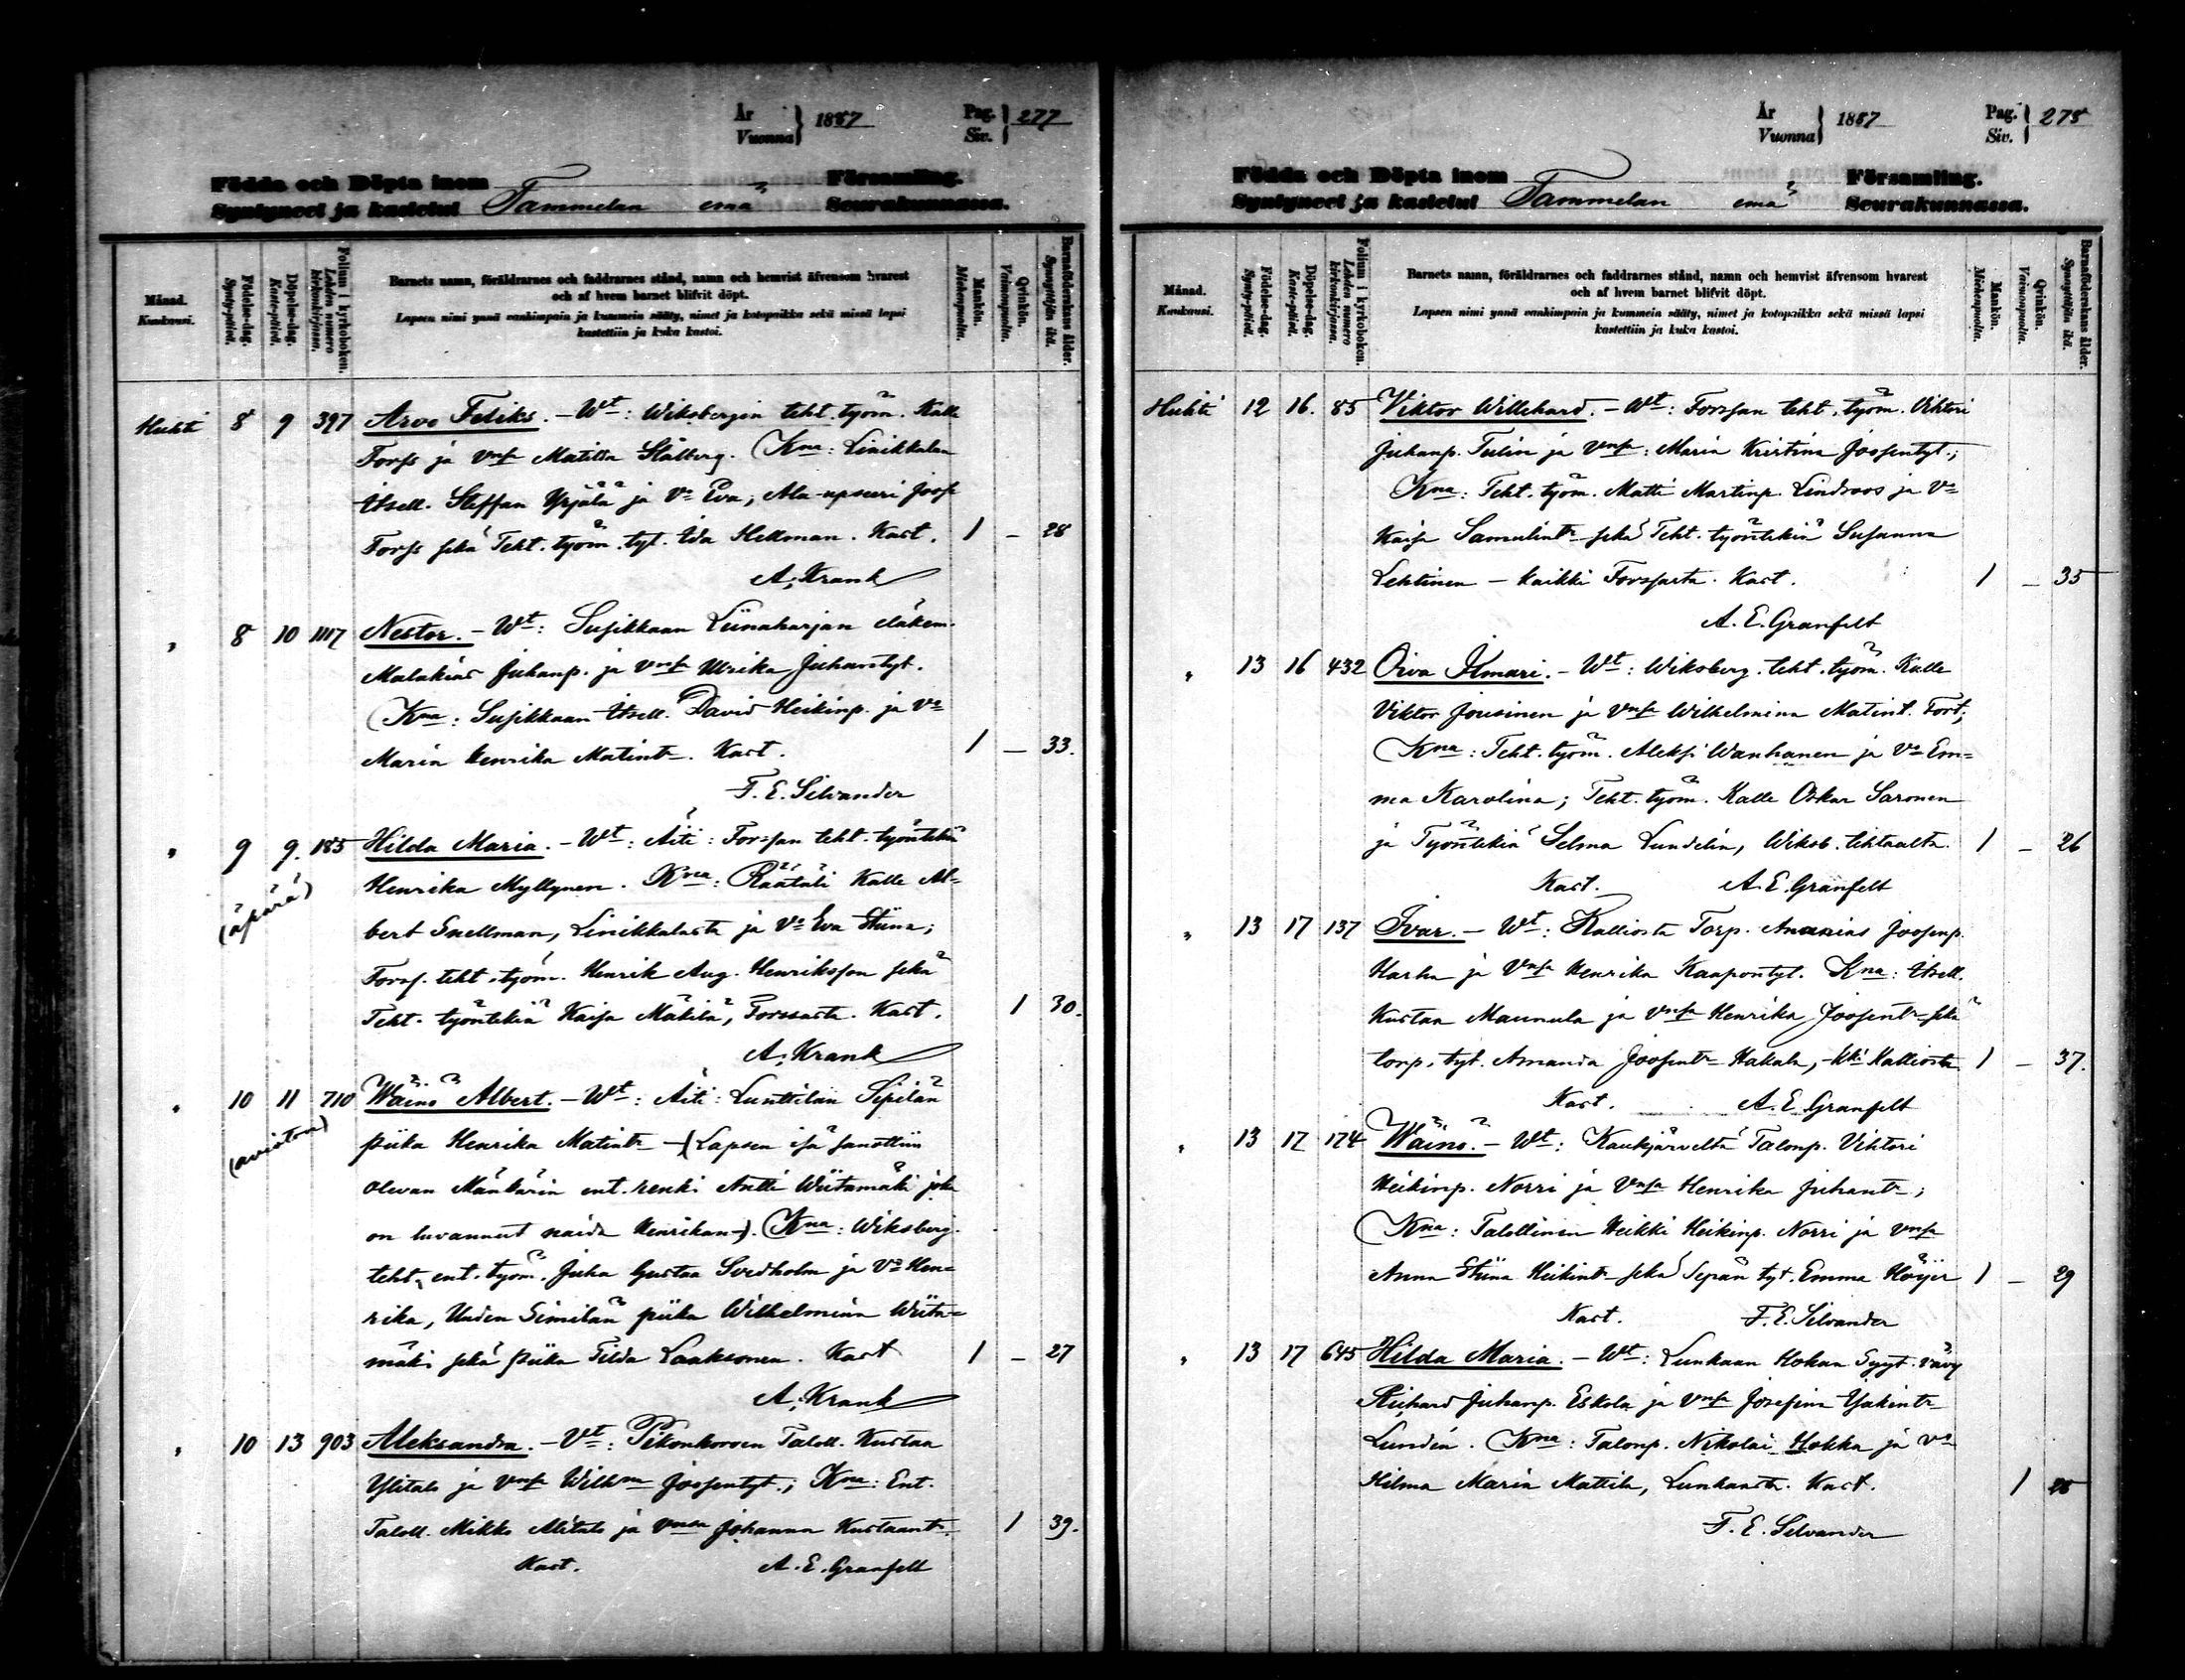 År
Vuonna } 1887 Pag. Siv. } 277
Födda och Döpta inom Församling.
Syntyneet ja kastetut Tammelan emä Seurakunnassa.
Månad. Kuukausi.
Födelse-dag. Synty-päivä.
Döpelse-dag. Kaste-päivä.
Folium i kyrkoboken. Lehden numero kirkonkirjassa.
Barnets namn, föräldrarnes och faddrarnes stånd, namn och hemvist äfvensom hvarest
och af hvem barnet blifvit döpt.
Lapsen nimi ynnä vanhimpain ja kummein sääty, nimet ja kotopaikka sekä missä lapsi
kastettiin ja kuka kastoi.
Mankön. Miehenpuolia.
Qvinkön. Vaimonpuolia.
Barnaföderskans ålder. Synnyttäjän ikä.
Huhti 8 9 397 Arvo Feliks. – Wt: Wiksbergin teht. työm. Kalle
Forss ja vnsa Matilda Stålberg. Kna: Linikkalan
itsell. Steffan Yrjälä ja Va Eva, Ala-upseeri Joos
Forss sekä Teht. työm. tyt. Ida Hellman. Kast. 1 – 28
A. Krank
„ 8 10 1117 Nestor. – Wt: Susikkaan Liinaharjan
Malakias Juhanp. ja vnsa Ulrika Juhantyt.
Kna: Susikkaan Itsell. David Heikinp. ja Va
Maria Henrika Matintr. Kast. 1 – 33.
F. E. Silvander
„ 9 9. 185 Hilda Maria. – Wt: Äiti: Forssan teht. työntekiä
(äpärä) Henrika Myllynen. Kna: Räätäli Kalle Al-
bert Snellman, Linikkalasta ja Va Eva Stiina;
Forss. teht. työm. Henrik Aug. Henriksson sekä
Teht. työntekiä Kaisa Mäkilä, Forssasta. Kast. 1 30.
A. Krank
„ 10 11 710 Wäinö Albert. – Wt: Äiti: Lunttilan Sipilän
(avioton) piika Henrika Matintr – (Lapsen isä sanottiin
olevan Mänkärin ent. renki Antti Wiitamäki joka
on luvannut naida Henrikan –). Kna: Wiksberg.
teht. ent. työm. Juha Gustaa Svedholm ja Va Hen-
rika, Uuden Similän piika Wilhelmiina Wiita-
mäki sekä piika Tilda Laaksonen. Kast 1 – 27
A. Krank
„ 10 13 903 Aleksandra. – Vt: Pikonkorven Taloll. Kustaa
Ylitalo ja vnsa Wilhma Joosentyt.; Kna: Ent.
Taloll. Mikko Alitalo ja vnsa Johanna Kustaantr. 1 39.
Kast. A. E. Granfelt
År
Vuonna } 1887 Pag. Siv. } 278
Födda och Döpta inom Församling.
Syntyneet ja kastetut Tammelan emä Seurakunnassa.
Månad. Kuukausi.
Födelse-dag. Synty-päivä.
Döpelse-dag. Kaste-päivä.
Folium i kyrkoboken. Lehden numero kirkonkirjassa.
Barnets namn, föräldrarnes och faddrarnes stånd, namn och hemvist äfvensom hvarest
och af hvem barnet blifvit döpt.
Lapsen nimi ynnä vanhimpain ja kummein sääty, nimet ja kotopaikka sekä missä lapsi
kastettiin ja kuka kastoi.
Mankön. Miehenpuolia.
Qvinkön. Vaimonpuolia.
Barnaföderskans ålder. Synnyttäjän ikä.
Huhti 12 16. 85 Viktor Willehard. – Wt: Forssan teht. työm. Vihtori
Juhanp. Tulin ja Vnsa: Maria Kristina Joosentyt.;
Kna: Teht. työm. Matti Martinp. Lindroos ja Va
Kaisa Samulintr sekä Teht. työntekiä Susanna
Lehtinen – kaikki Forssasta. Kast. 1 – 35
A. E. Granfelt
„ 13 16 432 Oiva Ilmari. – Wt: Wiksberg. teht. työm. Kalle
Viktor Jousinen ja Vnsa Wilhelmina Matint. Fort;
Kna: Teht. työm. Aleksi Wanhanen ja Va Em-
ma Karolina; Teht. työm. Kalle Oskar Saronen
ja Työntekiä Selma Lundelin, Wiksb. tehtaalta. 1 – 26
Kast. A. E. Granfelt
„ 13 17 137 Ivar. – Wt: Kalliosta Torp. Ananias Joosenp.
Harha ja Vnsa Henrika Kaapontyt. Kna: Itsell.
Kustaa Maunula ja vnsa Henrika Joosentr sekä
torp. tyt. Amanda Joosentr Hakala, kki Kalliosta 1 – 37.
Kast. A. E. Granfelt
„ 13 17 174 Wäinö. – Wt: Kaukjärveltä Talonp. Vihtori
Heikinp. Norri ja Vnsa Henrika Juhantr;
Kna: Talollinen Heikki Heikinp. Norri ja vnsa
Anna Stiina Heikintr sekä Sepän tyt. Emma Höijer 1 – 29
Kast. F. E. Silvander
„ 13 17 645 Hilda Maria. – Wt: Lunkaan Hokan Syyt. vävy
Richard Juhanp. Eskola ja vnsa Josefina Isakintr
Lundén. Kna: Talonp. Nikolai Hokka ja va
Hilma Maria Mattila, Lunkaasta. Kast. 1 26
F. E. Silvander